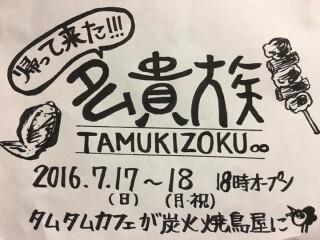 帰って来た!!!
タム貴族
TAMUKIZOKU∞
2016.7.17〜18 18時オープン
(日) (月・祝)
タムタムカフェが炭火焼鳥屋に